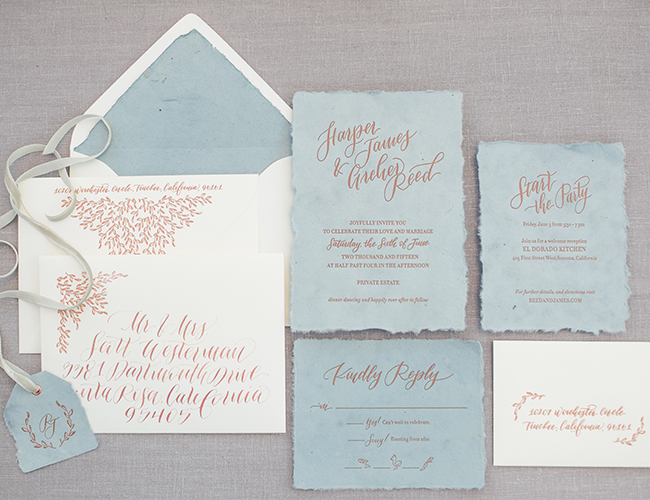 10207 Worchester Circle, Truckee, California, 96161
Mr & Mrs
Scott Westerman
9981 Dartmouth Drive
Santa Rosa, California
95405
Harper
James
& Archer
Reed
JOYFULLY INVITE YOU
TO CELEBRATE THEIR LOVE AND MARRIAGE
Saturday, the Sixth of June
TWO THOUSAND AND FIFTEEN
AT HALF PAST FOUR IN THE AFTERNOON
PRIVATE ESTATE
dinner dancing and happily ever after to follow
Start
the Party
Friday, June 5 from 5:30 - 7:30
Join us for a welcome reception
EL DORADO KITCHEN
405 First Street West, Sonoma, California
For further details and directions visit
REEDANDJAMES.COM
Kindly Reply
M
Yes! Can't wait to celebrate.
Sorry! Toasting from afar.
10207 Worchester Circle
Truckee, California, 96161